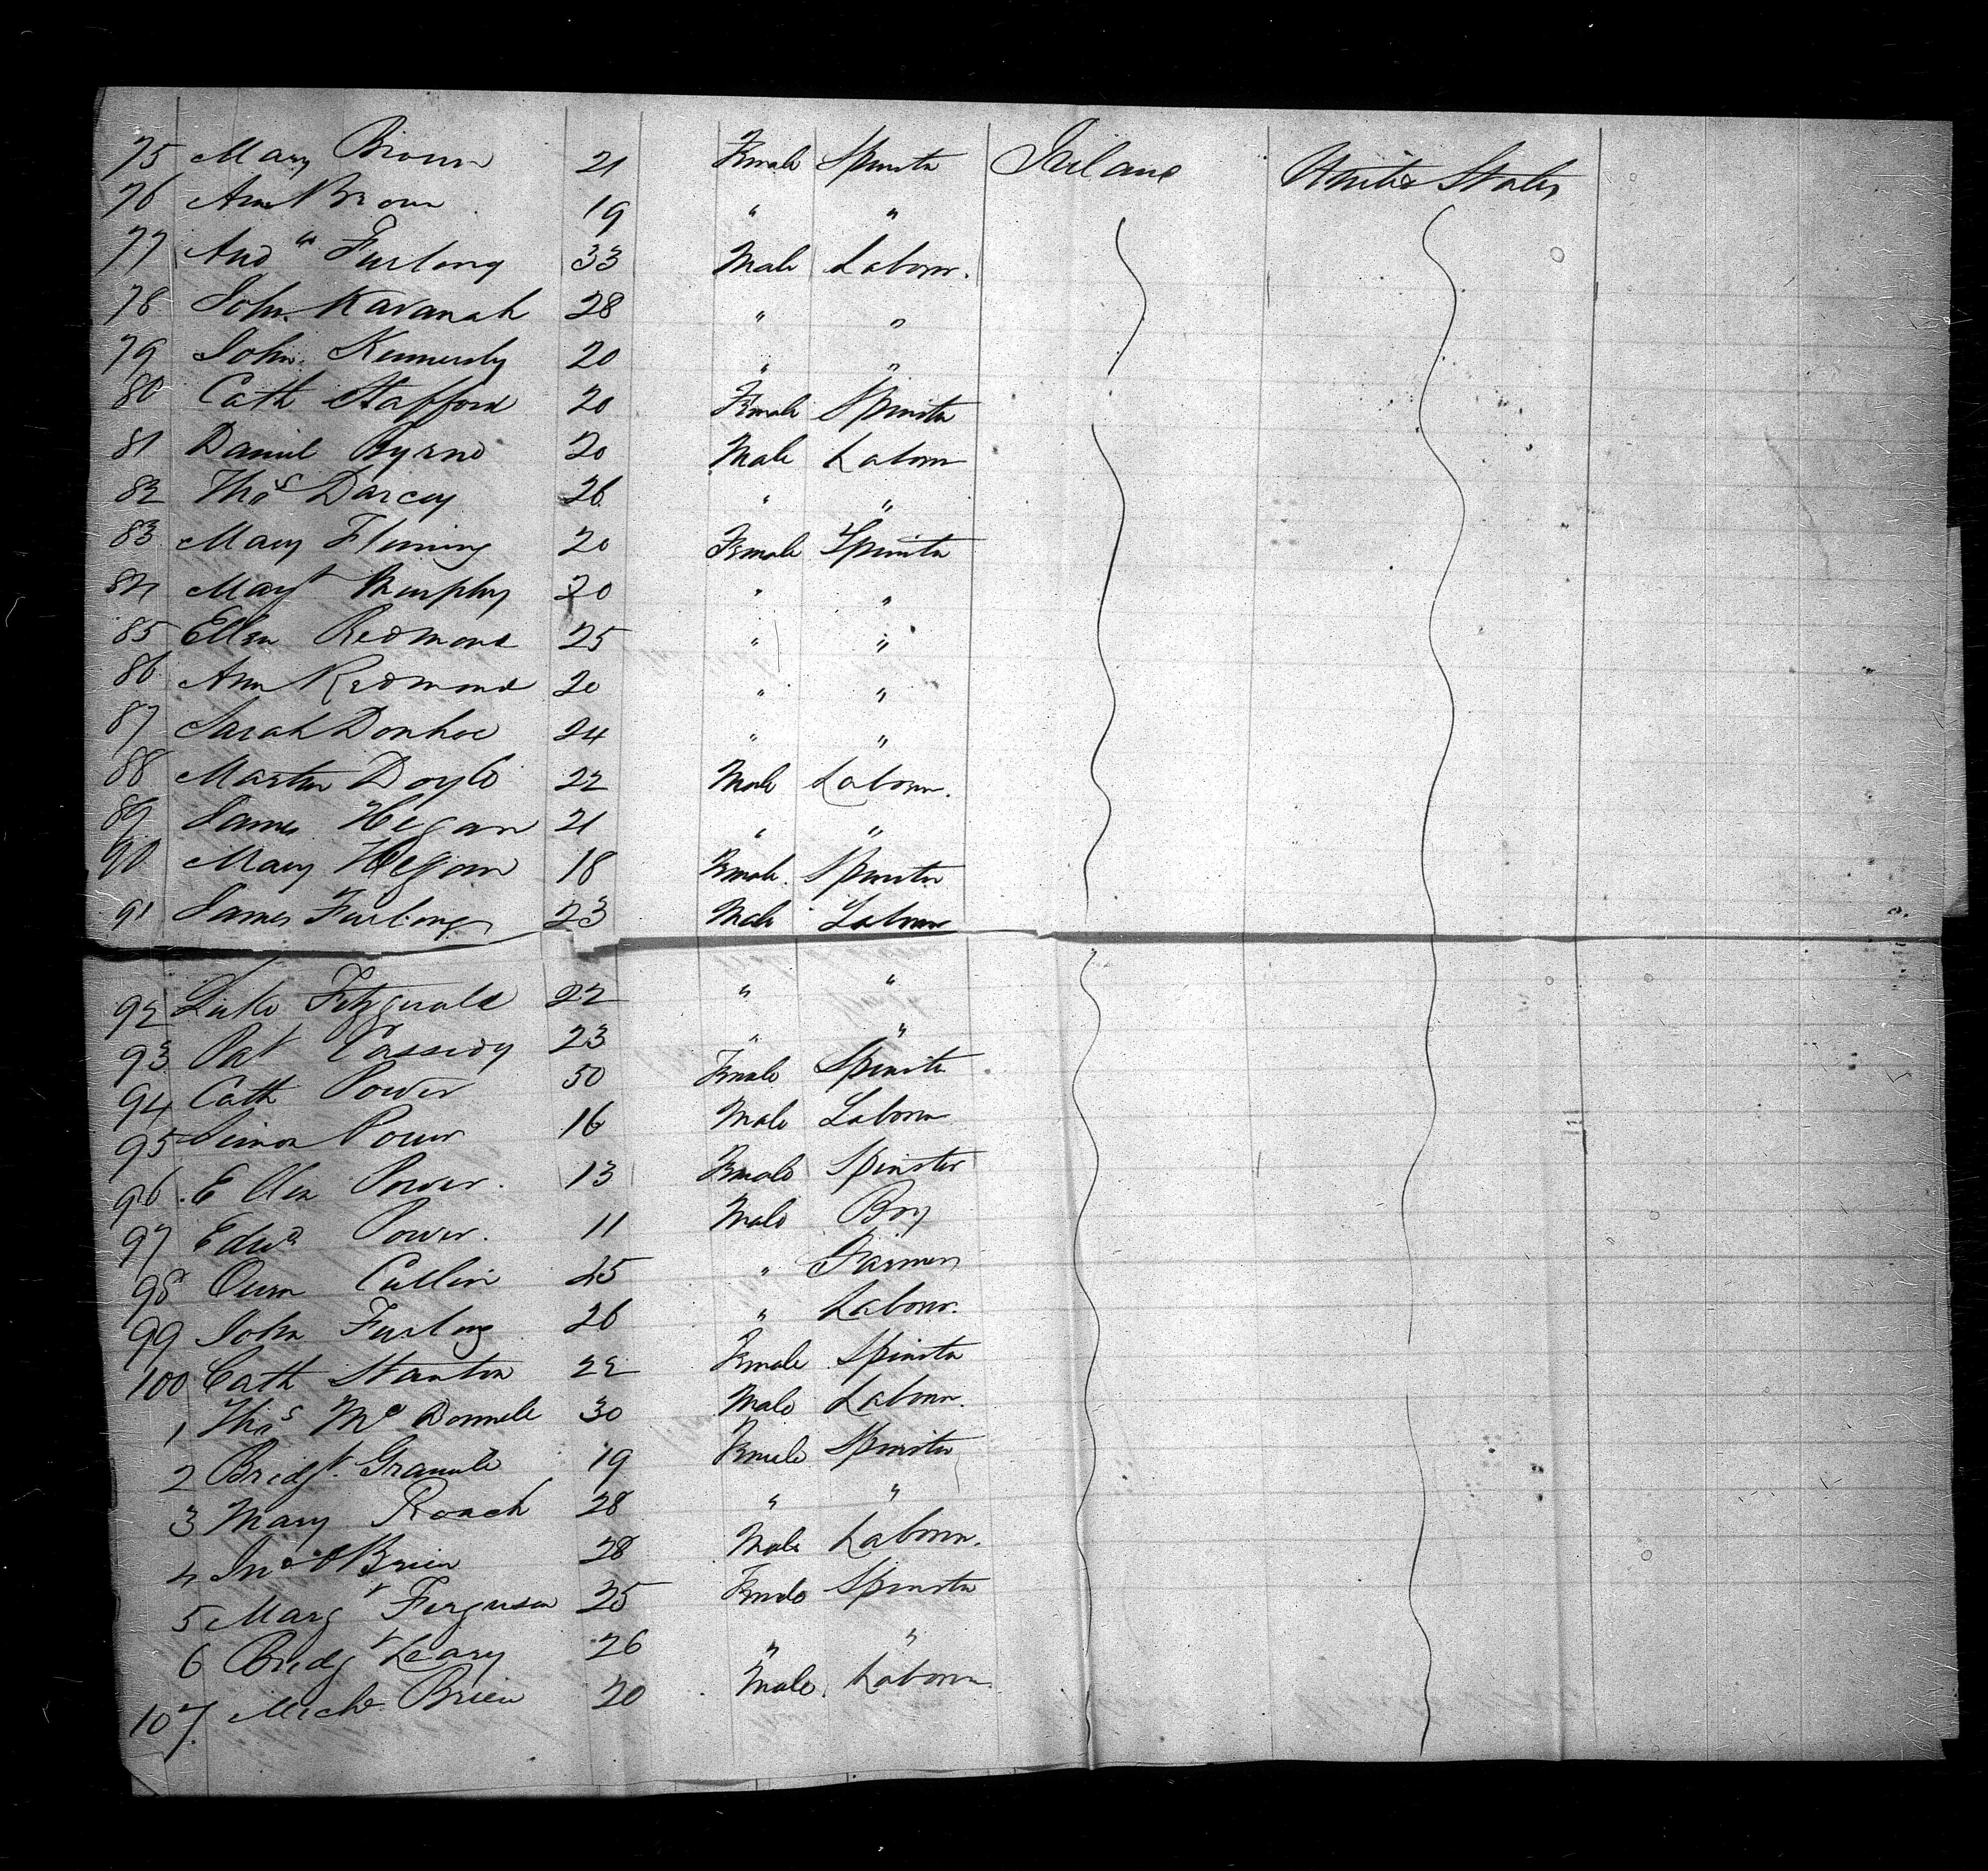 75 Mary Brown 21 Female Spinster Ireland United States
76 Ann Brown 19 " "
77 Andw Furlong 33 Male Labourer
78 John Kavanah 28 " "
79 John Kennerdy 20 " "
80 Cath Stafford 20 Female Spinster
81 Daniel Byrne 20 Male Labourer
82 Thos Darcey 26 " "
83 Mary Fleming 20 Female Spinster
84 Margt Murphy 20 " "
85 Ellen Redmond 25 " "
86 Ann Redmond 20 " "
87 Sarah Donhoe 24 " "
88 Martin Doyle 22 Male Labourer
89 James Hegan 21 " "
90 Mary Hegan 18 Female Spinster
91 James Furlong 23 Male Labourer
92 Luke Fitzgerald 22 " "
93 Pat Cassidy 23 " "
94 Cath Power 50 Female Spinster
95 Simon Power 16 Male Labourer
96 Ellen Power 13 Female Spinster
97 Edwd Power 11 Male Boy
98 Owen Cullin 25 " Farmer
99 John Furlong 26 " Labourer
100 Cath Stanton 22 Female Spinster
1 Thos McDonnell 30 Male Labourer
2 Bridgt 19 Female Spinster
3 Mary Roach 28 " "
4 Jno O Brien 28 Male Labourer
5 Margt Ferguson 25 Female Spinster
6 Bridgt Leary 26 " "
107 Michl Brien 20 Male Labourer